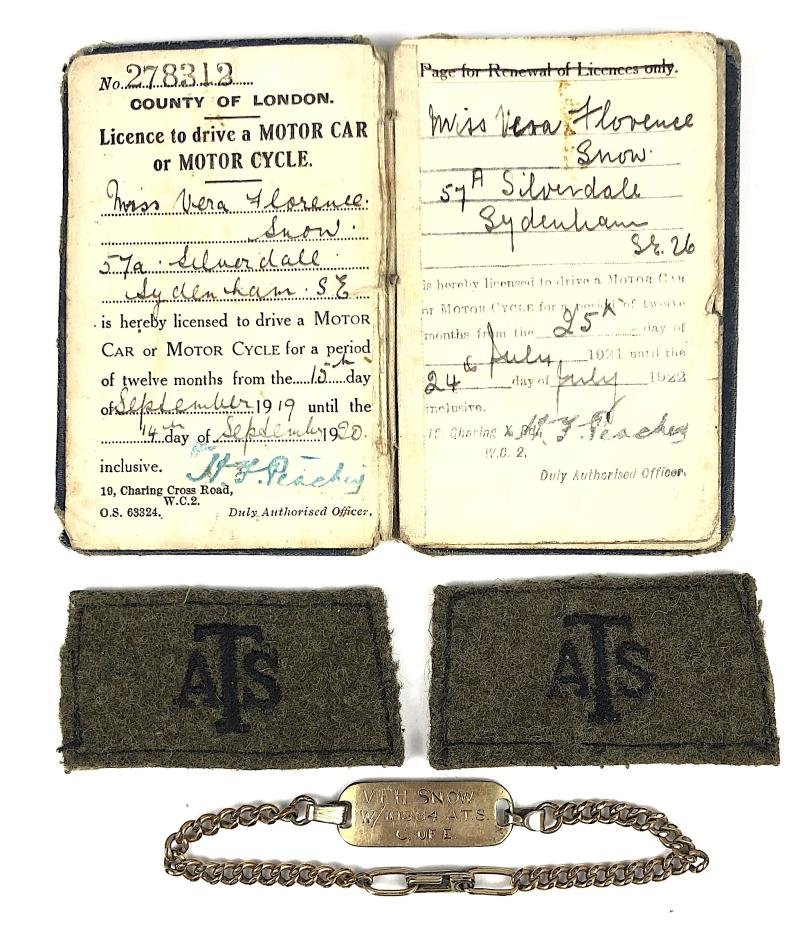 No. 278312
COUNTY OF LONDON.
Licence to drive a MOTOR CAR
or MOTOR CYCLE.
Miss Vera Florence
Snow.
57a Silverdale
Sydenham. SE
is hereby licensed to drive a MOTOR
CAR or MOTOR CYCLE for a period
of twelve months from the 15th day
of September 1919 until the
14th day of September 1920.
inclusive. H. F. Peachey
19, Charing Cross Road,
W.C.2.
O.S. 63324. Duly Authorised Officer.
Page for Renewal of Licences only.
Miss Vera Florence
Snow.
57A Silverdale
Sydenham
S.E. 26
is hereby licensed to drive a MOTOR CAR
or MOTOR CYCLE for a period of twelve
months from the 25th day of
July 1921 until the
24th day of July 1922
inclusive.
19, Charing X Rd, H. F. Peachey
W.C. 2.
Duly Authorised Officer.
ATS
ATS
SNOW
A.T.S.
C. OF E.